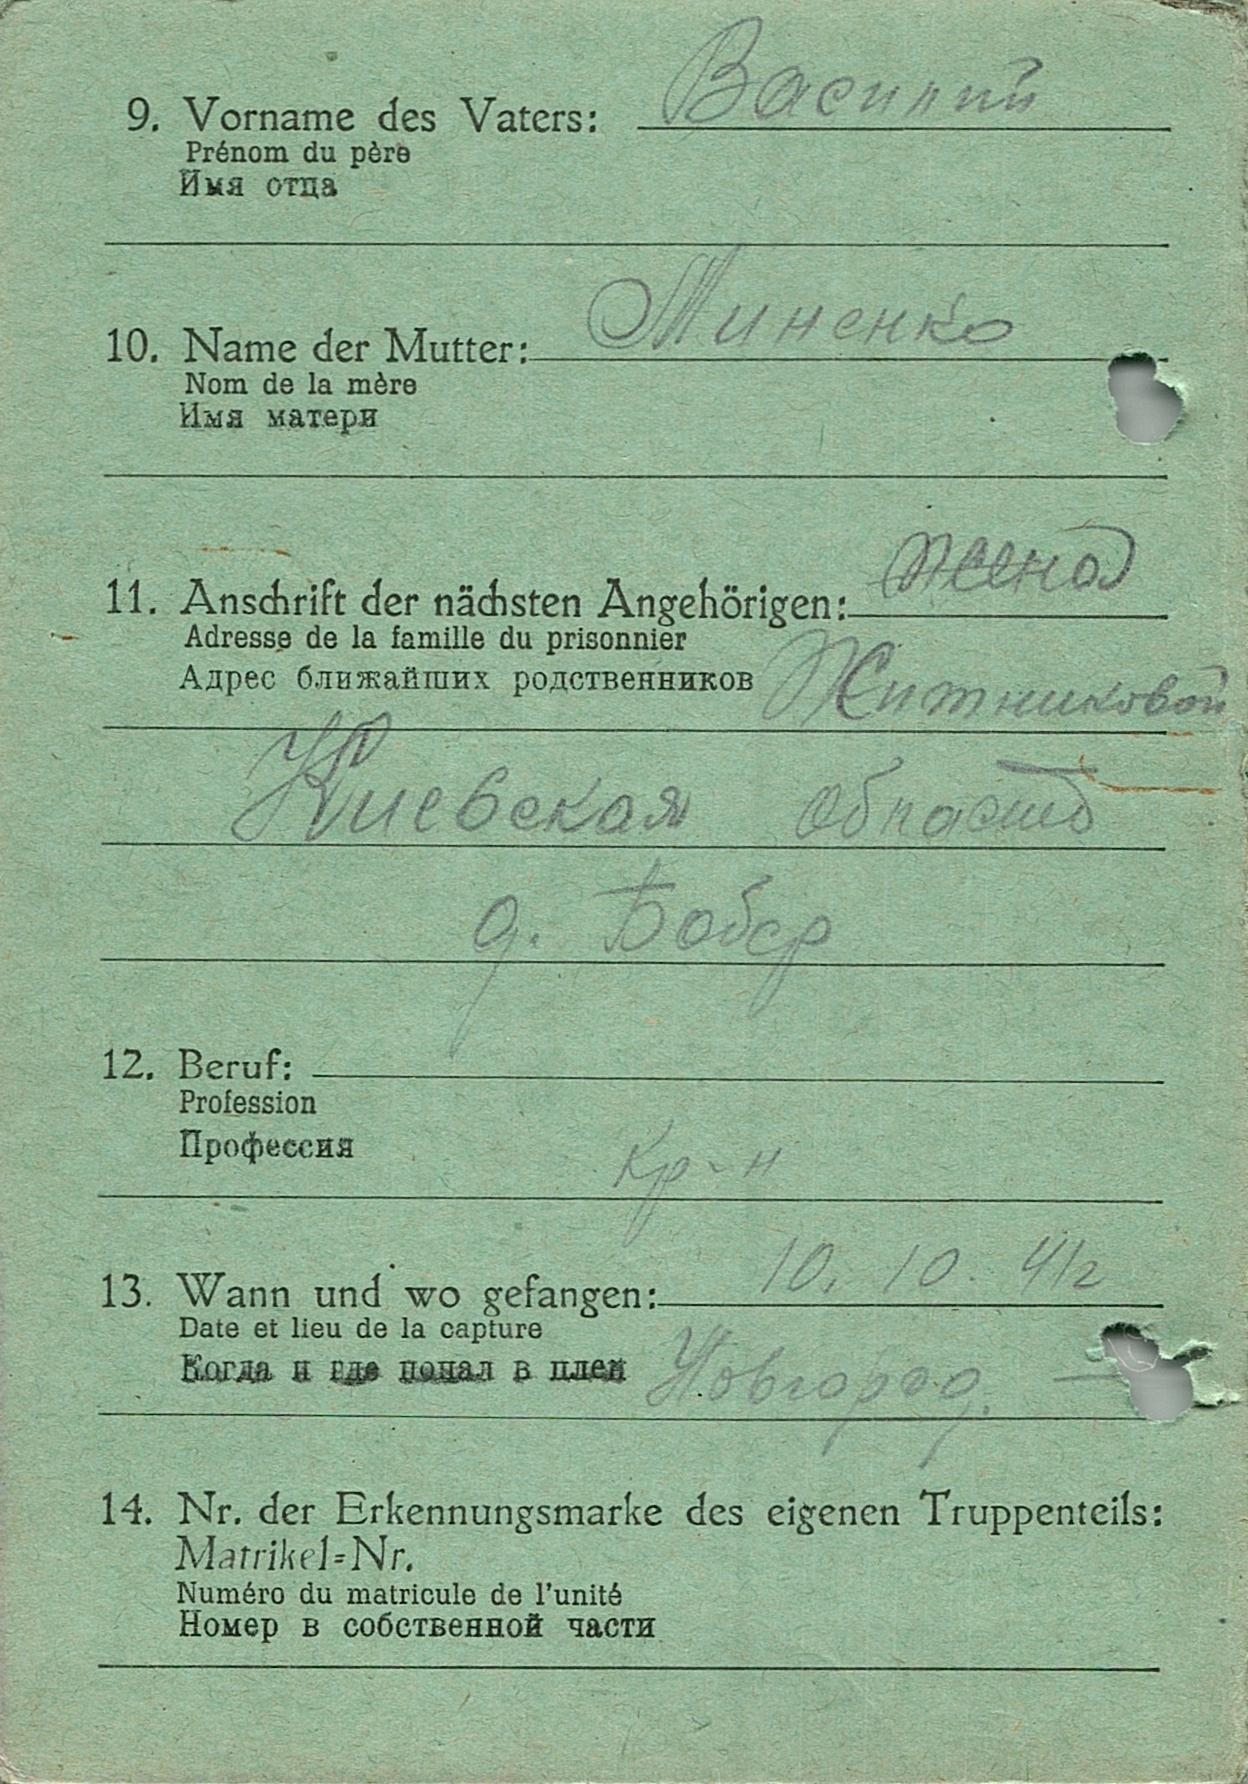 9. Vorname des Vaters: Василий
Prénom du père
Имя отца
10. Name der Mutter: Миненко
Nom de la mère
Имя матери
11. Anschrift der nächsten Angehörigen: жена
Adresse de la famille du prisonnier
Адрес ближайших родственников Житниковой
Киевская область
д. Бобер
12. Beruf:
Profession
Профессия
кр-н
13. Wann und wo gefangen: 10. 10. 41г
Date et lieu de la capture
Когда и где попал в плен Новгород.
14. Nr. der Erkennungsmarke des eigenen Truppenteils:
Matrikel=Nr.
Numéro du matricule de l'unité
Номер в собственной части